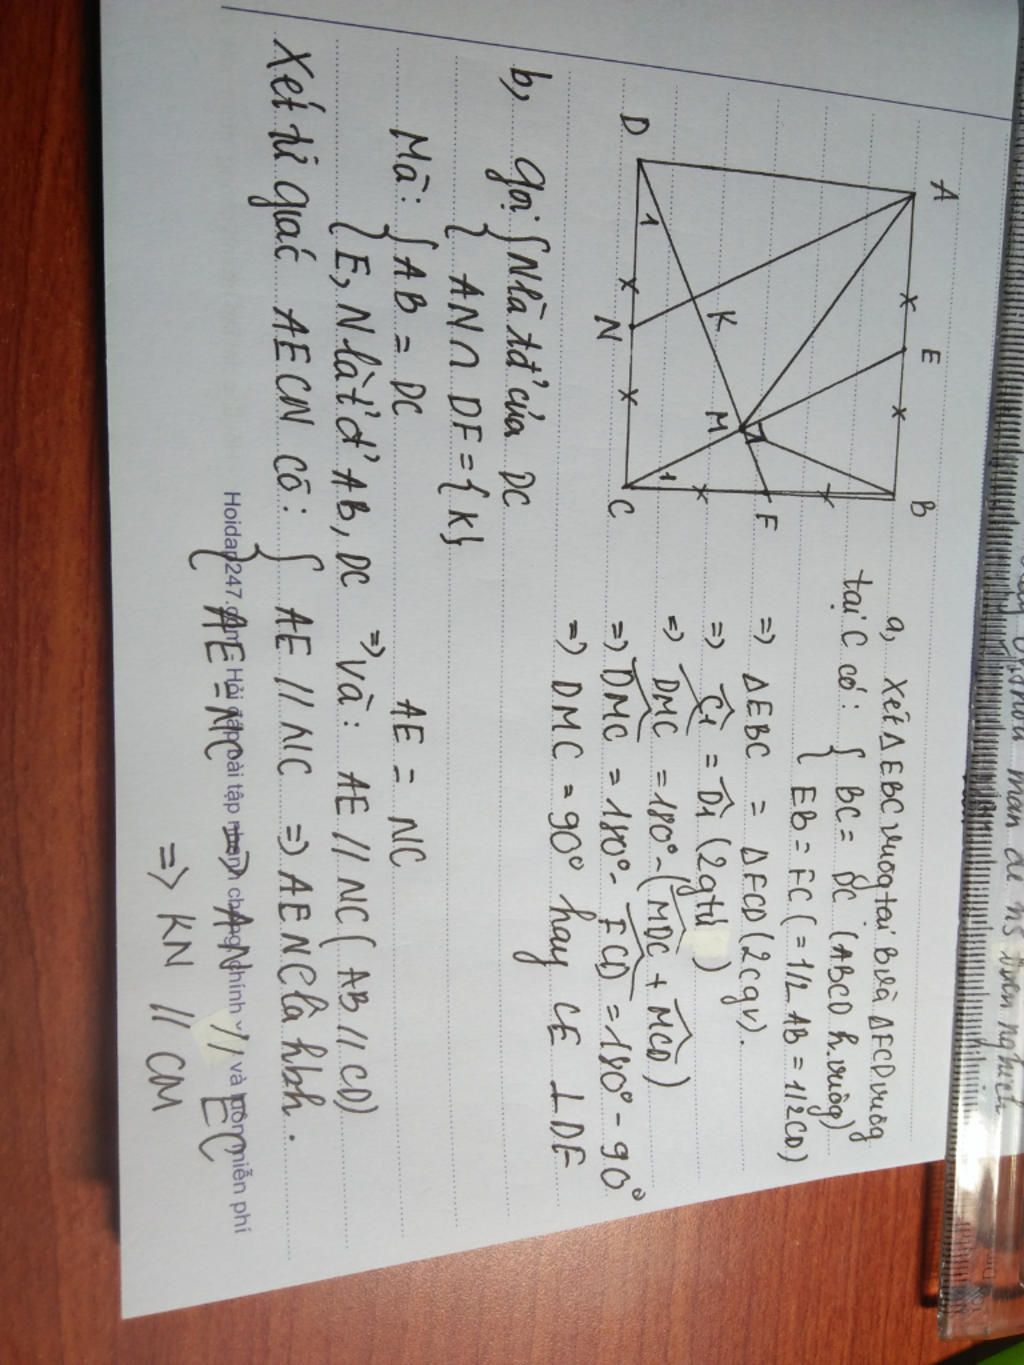 A
E
B
D
1
K
N
M
F
1
C
a, Xét △EBC vuôg tại B và △FCD vuôg
tại C có: { BC = DC (ABCD h.vuôg)
EB = FC (= 1/2 AB = 1/2 CD)
=> △EBC = △FCD (2cgv).
=> C1 = D1 (2gtư)
=> DMC = 180° - (MDC + MCD)
=> DMC = 180° - FCD = 180° - 90°
=> DMC = 90° hay CE ⊥ DF
b, Gọi { N là tđ' của DC
AN ∩ DF = {K}
Mà: { AB = DC AE = NC
{ E, N là tđ' AB, DC => Và: AE // NC (AB // CD)
Xét tứ giác AECN có: { AE // NC => AENC là hbh.
AE = NC => AN // EC
=> KN // CM
Hoidap247.com - Hỏi đáp bài tập nhanh chóng, chính và miễn phí